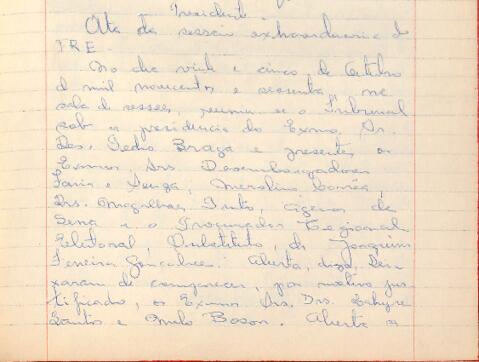 Presidente.
Ata da sessão extraordinaria do
TRE.
No dia vinte e cinco de Outubro
de mil novecentos e sessenta, na
sala de sessões, reuniu-se o Tribunal
sob a presidencia do Exmo. Sr.
Des. Pedro Braga e presentes os
Exmos. Srs. Desembargadores
Faria e Souza, Merolino Corrêa,
Drs. Magalhães Pinto, Cicero de
Sena e o Procurador Regional
Eleitoral, Substituto, dr. Joaquim
Ferreira Gonçalves. Aberta, digo, Dei-
xaram de comparecer, por motivo jus-
tificado, os Exmos. Srs. Drs.
Santos e Boson. Aberta a